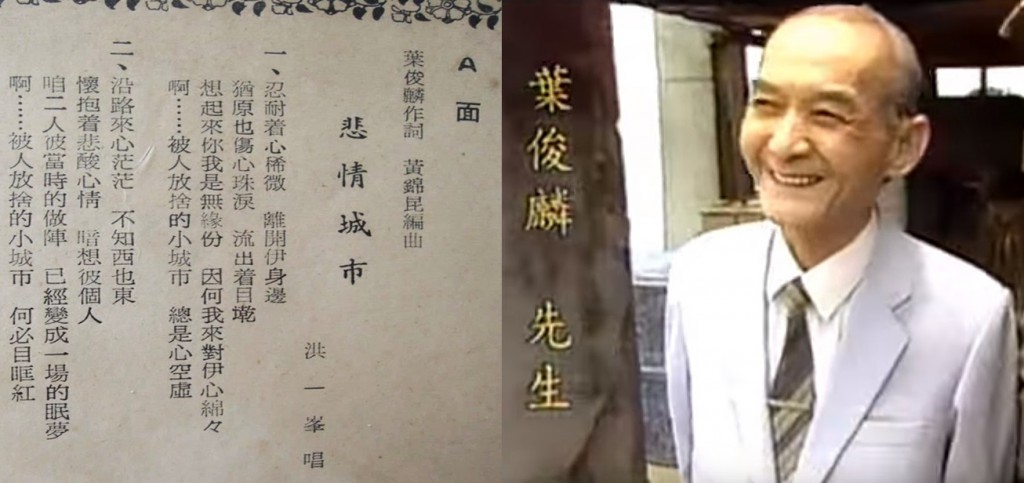 A面
葉俊麟作詞　黃錦昆編曲
悲情城市
洪一峯唱
一、忍耐着心稀微　離開伊身邊
猶原也傷心珠淚　流出着目墘
想起來你我是無緣份　因何我來對伊心綿々
啊……被人放捨的小城市　總是心空虛
二、沿路來心茫茫　不知西也東
懷抱着悲酸心情　暗想彼個人
咱二人彼當時的做陣　已經變成一場的眠夢
啊……被人放捨的小城市　何必目眶紅
葉俊麟　先生